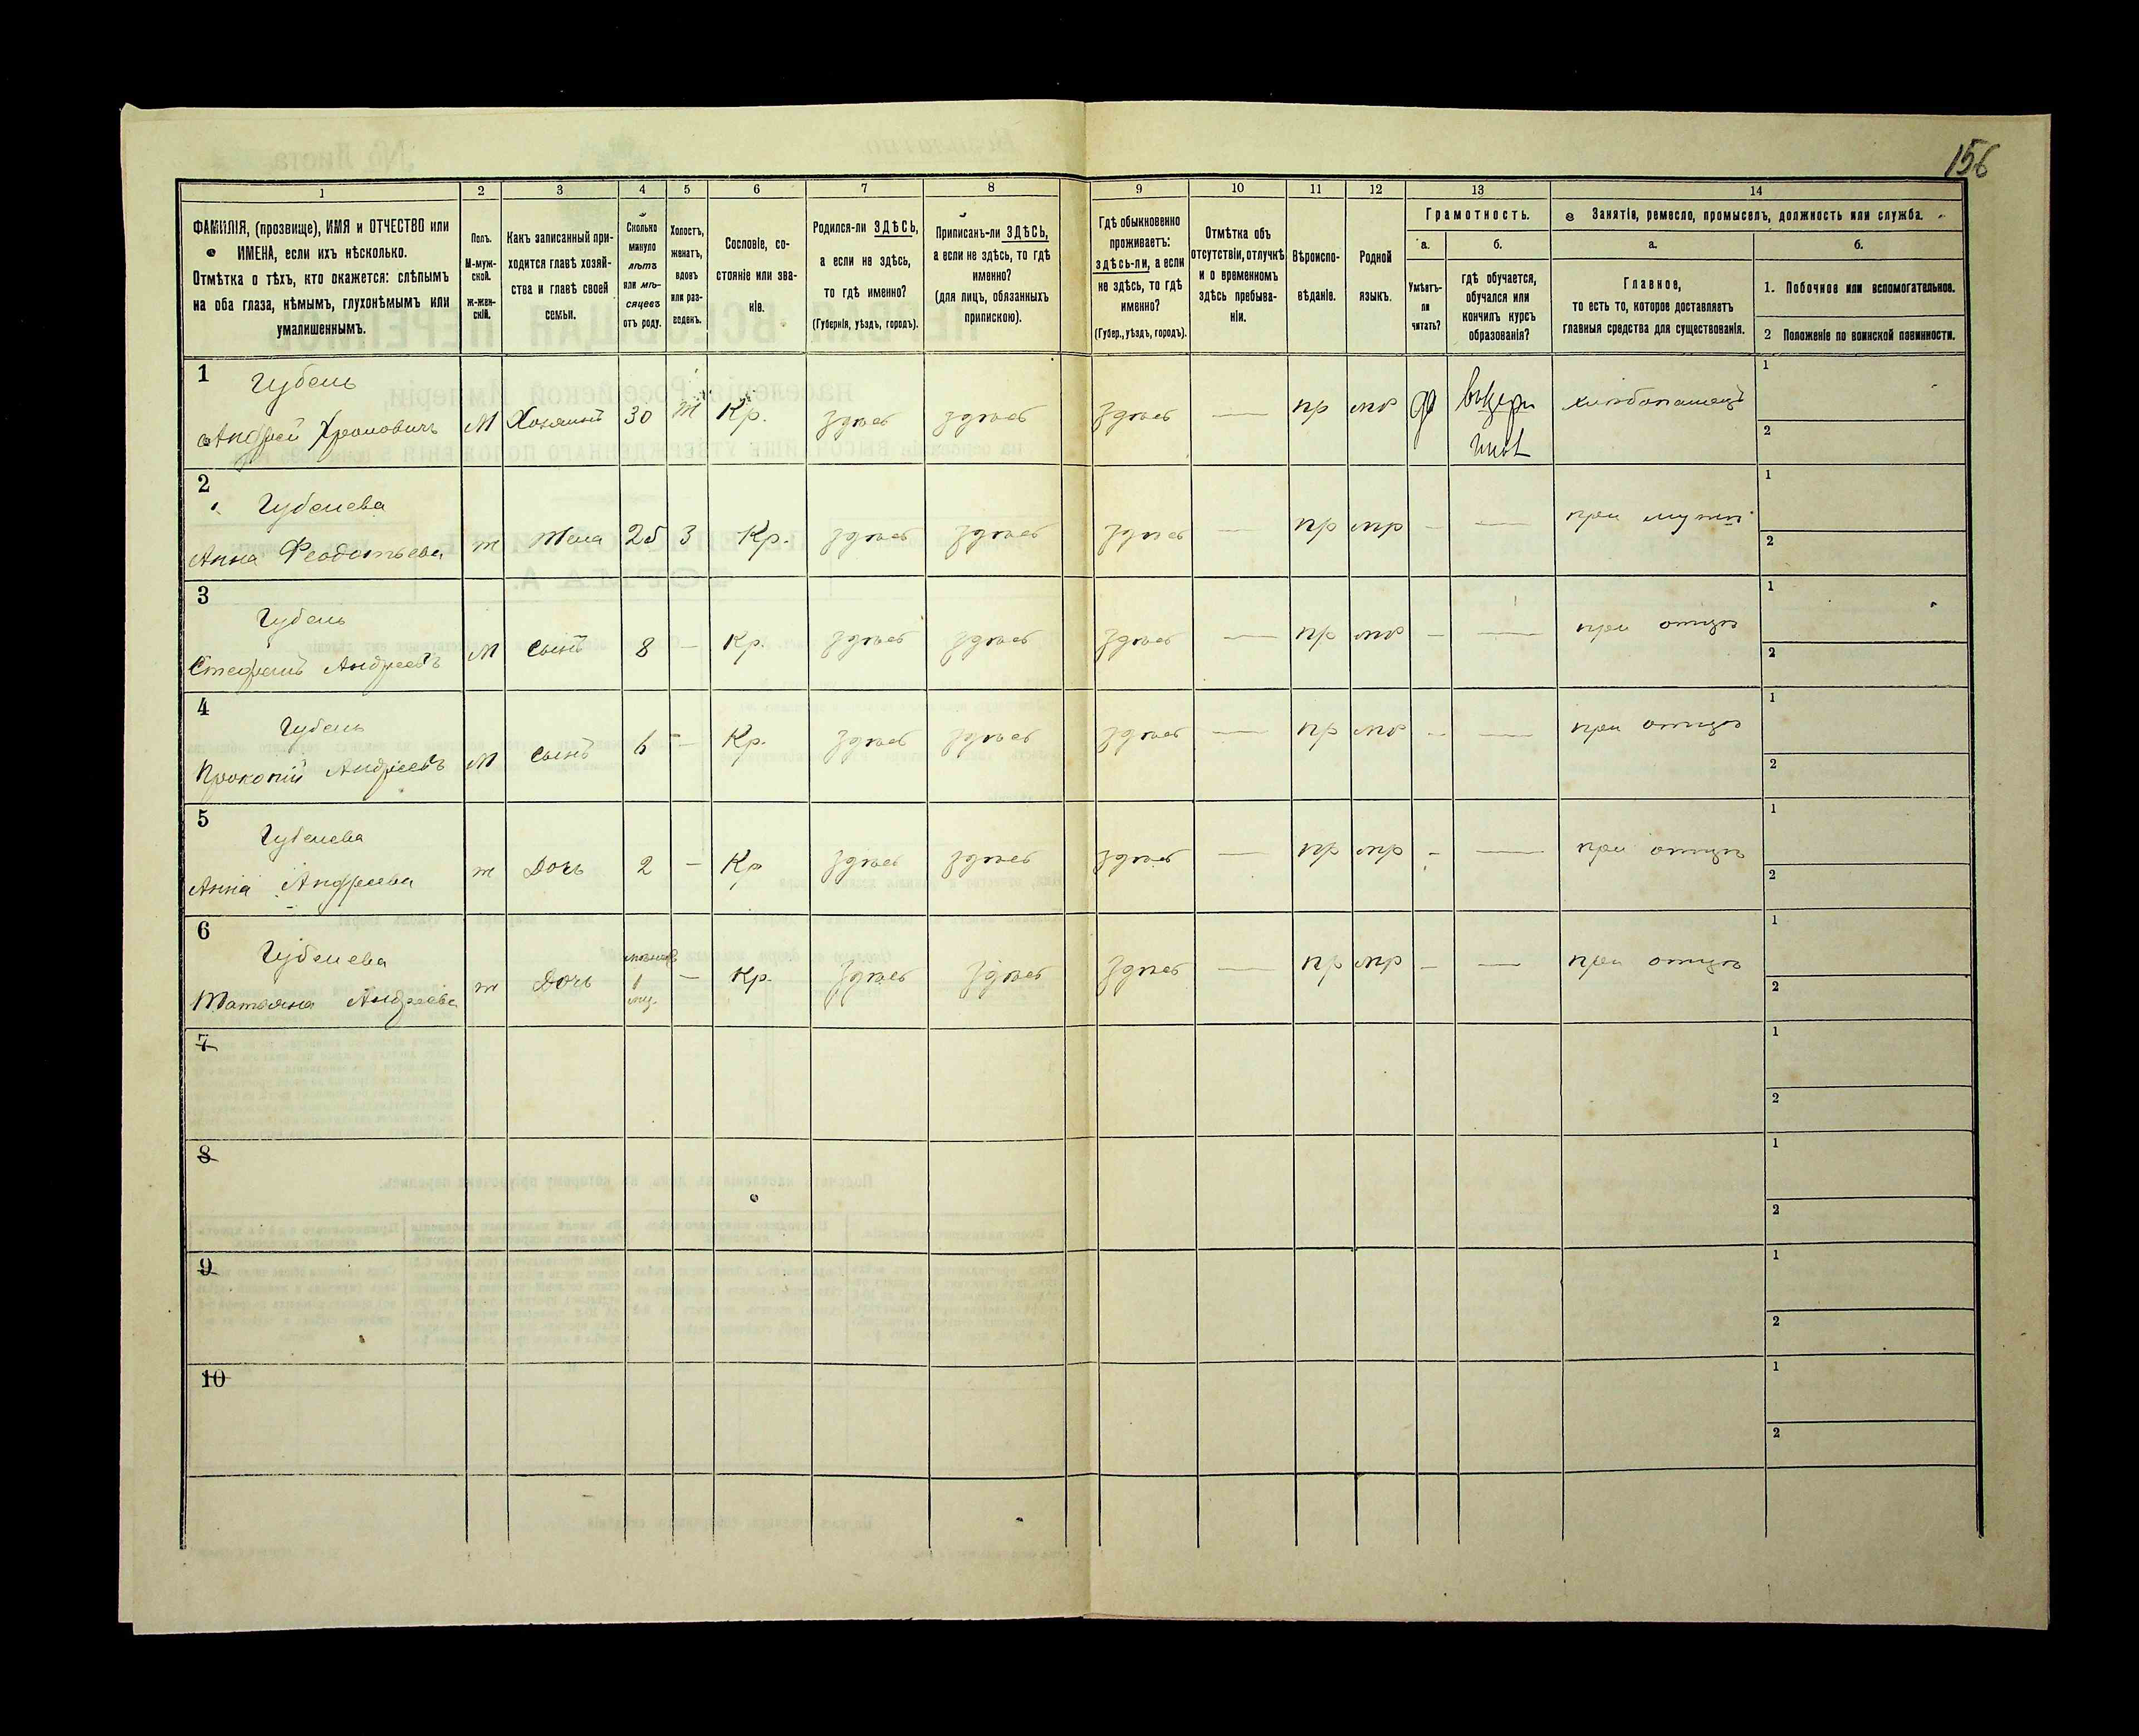 156
1 2 3 4 5 6 7 8 9 10 11 12 13 14
ФАМИЛІЯ, (прозвище), ИМЯ и ОТЧЕСТВО или
ИМЕНА, если ихъ нѣсколько.
Отмѣтка о тѣхъ, кто окажется: слѣпымъ
на оба глаза, нѣмымъ, глухонѣмымъ или
умалишеннымъ.
Полъ.
М-муж-
ской.
Ж-жен-
скій.
Какъ записанный при-
ходится главѣ хозяй-
ства и главѣ своей
семьи.
Сколько
минуло
лѣтъ
или мѣ-
сяцевъ
отъ роду.
Холостъ,
женатъ,
вдовъ
или раз-
веденъ.
Сословіе, со-
стояніе или зва-
ніе.
Родился-ли ЗДѢСЬ,
а если не здѣсь,
то гдѣ именно?
(Губернія, уѣздъ, городъ).
Приписанъ-ли ЗДѢСЬ,
а если не здѣсь, то гдѣ
именно?
(для лицъ, обязанныхъ
припискою).
Гдѣ обыкновенно
проживаетъ:
здѣсь-ли, а если
не здѣсь, то гдѣ
именно?
(Губер., уѣздъ, городъ).
Отмѣтка объ
отсутствіи, отлучкѣ
и о временномъ
здѣсь пребыва-
ніи.
Вѣроиспо-
вѣданіе.
Родной
языкъ.
Грамотность.
а.
Умѣетъ-
ли
читать?
б.
гдѣ обучается,
обучался или
кончилъ курсъ
образованія?
Занятіе, ремесло, промыселъ, должность или служба.
а.
Главное,
то есть то, которое доставляетъ
главныя средства для существованія.
б.
1. Побочное или вспомогательное.
2 Положеніе по воинской повинности.
1 Губень
Андрей М Хозяинъ 30 ж Кр. здѣсь здѣсь здѣсь — пр мр да хлѣбопашецъ
1
2
2 Губенева
Анна Феодотьева ж Жена 25 з Кр. здѣсь здѣсь здѣсь — пр мр - — при мужѣ
1
2
3 Губень
Стефанъ Андреевъ М Сынъ 8 — Кр. здѣсь здѣсь здѣсь — пр мр - — при отцѣ
1
2
4 Губень
Прокопій Андреевъ М Сынъ 6 — Кр. здѣсь здѣсь здѣсь — пр мр - — при отцѣ
1
2
5 Губенева
Анна Андреева ж Дочь 2 — Кр здѣсь здѣсь здѣсь — пр мр - — при отцѣ
1
2
6 Губенева
Татьяна Андреева ж Дочь 1 — Кр. здѣсь здѣсь здѣсь — пр мр - — при отцѣ
1
2
7
1
2
8
1
2
9
1
2
10
1
2